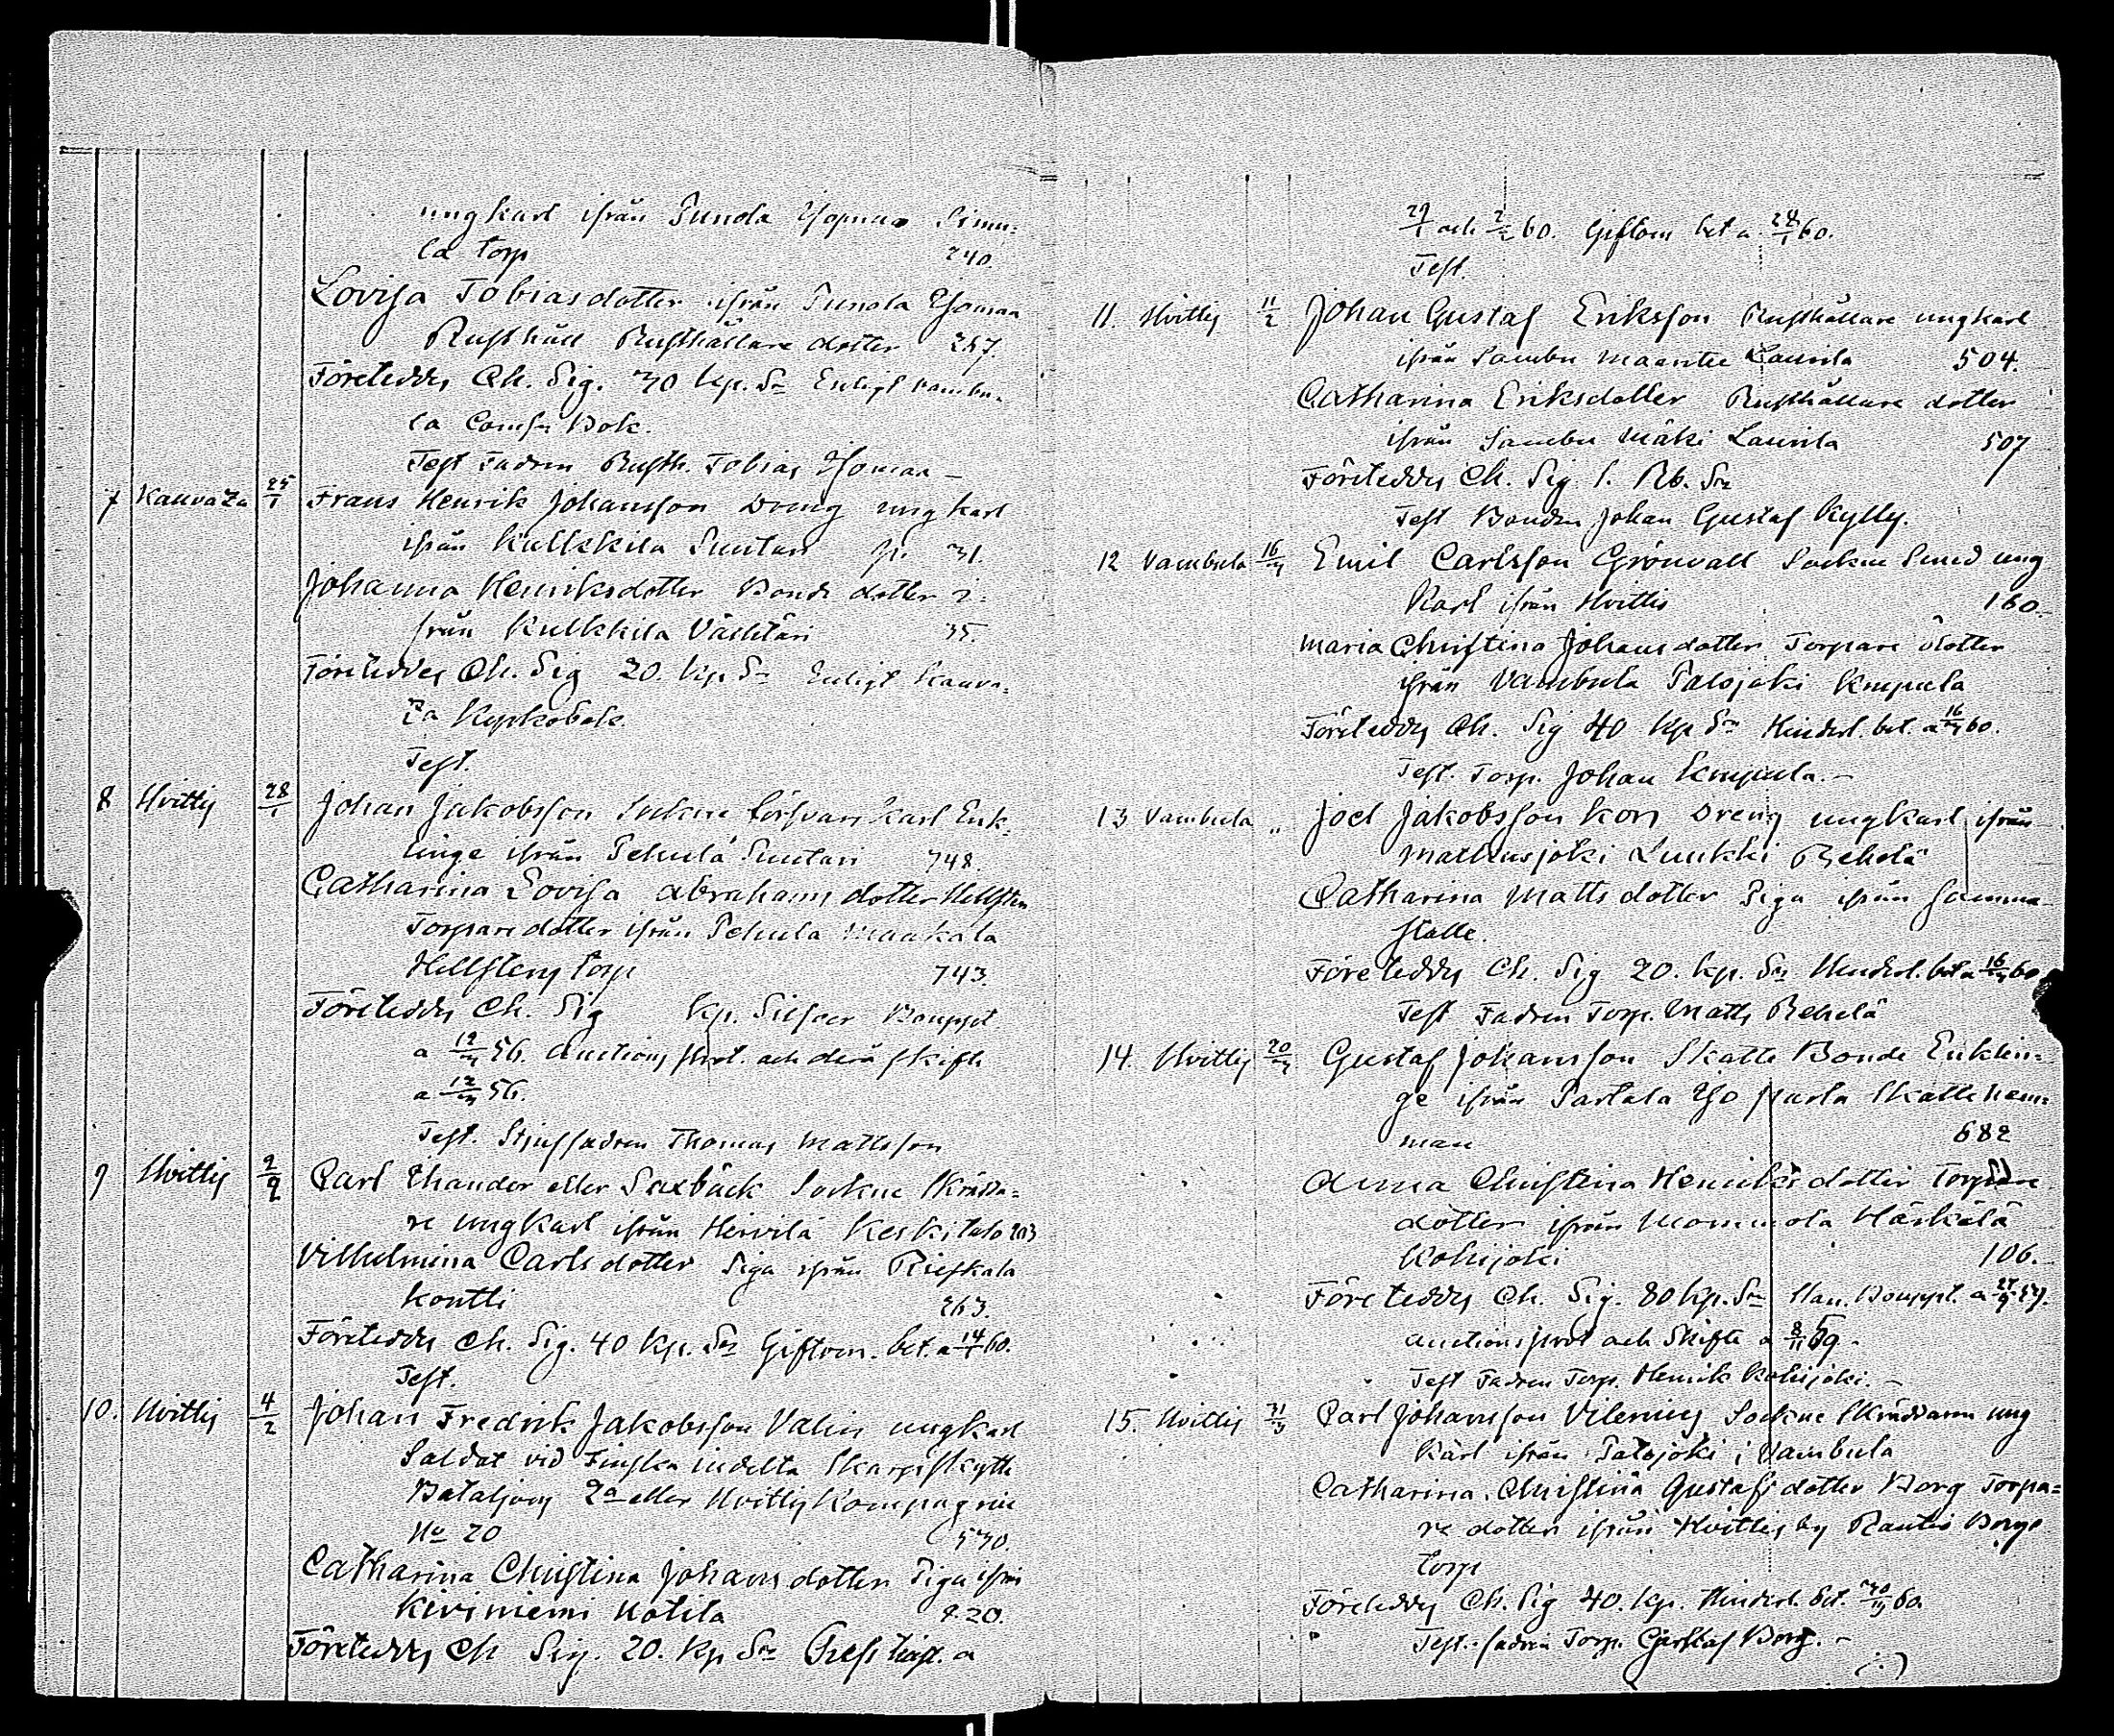 ungkarl ifrån Punola Yjomaa Simu=
la torp 240.
Lovisa Tobiasdotter ifrån Punola Yjomaa
Rusthåll Rusthållare dotter 257.
Företeddes Ch. Sig. 30 kp. Sr Enligt Vambu=
la Comm. Bok.
Test Fadren Rusth. Tobias Yjomaa —
7 Kauvatza 25/1 Frans Henrik Johansson Dreng ungkarl
ifrån Kulkkila Suntari p. 31.
Johanna Henriksdotter Bonde dotter i=
från Kulkkila Vähtäri 35.
Företeddes Ch. Sig 20. kp. Sr Enligt Kauva=
tza Kyrkobok.
Test.
8 Hvittis 28/1 Johan Jakobsson Sockne Försvars karl Enk=
linge ifrån Pehula Suutari 748.
Catharina Lovisa Abrahams dotter Hellsten
Torpare dotter ifrån Pehula Maakala
Hellstens torp 743.
Företeddes Ch. Sig kp. Silfver Bouppt.
a 12/3 56. Auctions prot. och derå skifte
a 12/3 56.
Test. Stjuffadren Thomas Mattsson
9 Hvittis 2/2 Carl Thander eller Saxbäck Sockne Skrädda=
re ungkarl ifrån Hirvilä Keskitalo 203
Vilhelmina Carls dotter Piga ifrån Rieskala
Kontti 263.
Företeddes Ch. Sig. 40 kp. Sr Giftom. bet. a 14/1 60.
Test.
10. Hvittis 4/2 Johan Fredrik Jakobsson Valin ungkarl
Soldat vid Finska indelta Skarpskytte
Bataljons 2a eller Hvittis Kompagnie
No 20 530.
Catharina Christina Johans dotter Piga ifrån
Kiviniemi Kotila 220.
Företeddes Ch Sig. 20. kp Sr Prest a
29/1 och 2/2 60. Giftom bet a 28/1 60.
Test.
11. Hvittis 11/2 Johan Gustaf Eriksson Rusthållare ungkarl
ifrån Sambu Maantie Laurila 504.
Catharina Eriksdotter Rusthållare dotter
ifrån Sambu Mäki Laurila 507
Företeddes Ch. Sig 1. Rb. Sr
Test Bonden Johan Gustaf Kylly.
12 Vambula 16/3 Emil Carlsson Grönvall Sockne Smed ung
Karl ifrån Hvittis 160.
Maria Christina Johans dotter Torpare dotter
ifrån Vambula Palojoki Knuula
Företeddes Ch. Sig 40 kp Sr Hinderl. bet. a 16/3 60.
Test. Torp. Johan Knuula. —
13 Vambula „ Joel Jakobsson Kors Dreng ungkarl ifrån
Matkusjoki Luukki Rekolä
Catharina Matts dotter Piga ifrån samma
ställe.
Företeddes Ch. Sig 20. kp. Sr Hinderl. bet a 16/3 60
Test Fadren Torp. Matts Rekolä
14. Hvittis 20/3 Gustaf Johansson Skatte Bonde Enklin=
ge ifrån Sartala Yjo Skatte hem=
man 682
Anna Christina Henriks dotter Torpare
dotter ifrån Mommola Härkälä
Kohijoki 106.
Företeddes Ch. Sig. 80 kp. Sr Han. Bouppt. a 27/9 59.
auctionsprot och Skifte a 8/11 59. —
Test Fadren Torp. Henrik Kohijoki. —
15. Hvittis 31/3 Carl Johansson Vilenius Sockne Skräddare ung
karl ifrån Palojoki i Vambula
Catharina Christina Gustafs dotter Borg Torpa=
re dotter ifrån Hvittis by Rantio Borgs
torp
Företeddes Ch. Sig 40. kp. Hinderl. bet. 30/3 60.
Test. fadren Torp. Gustaf Borg. —